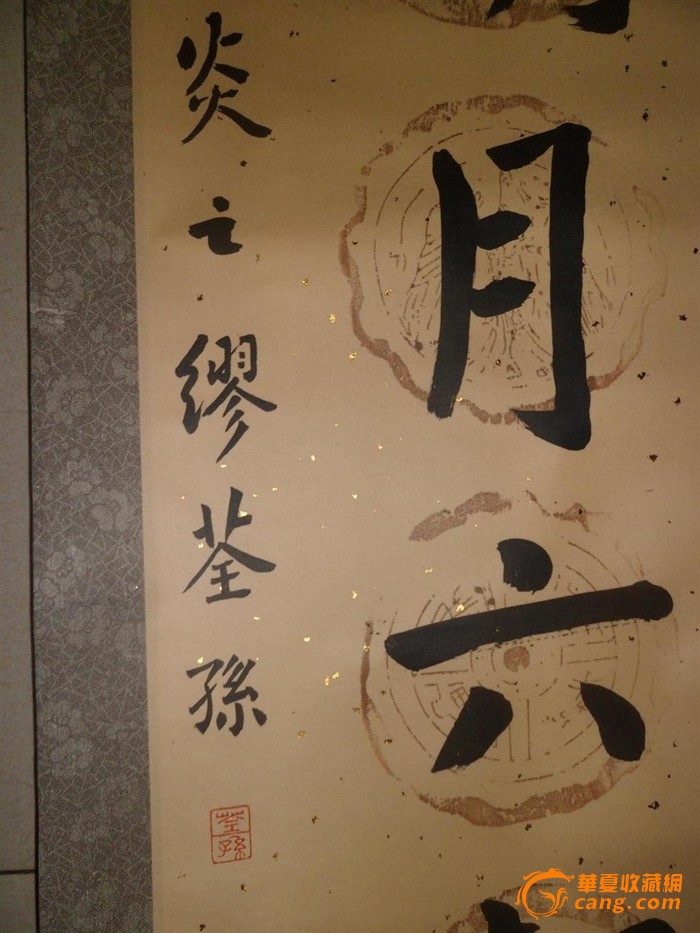 月六
炎之繆荃孫
荃孫
華夏收藏網
cang.com